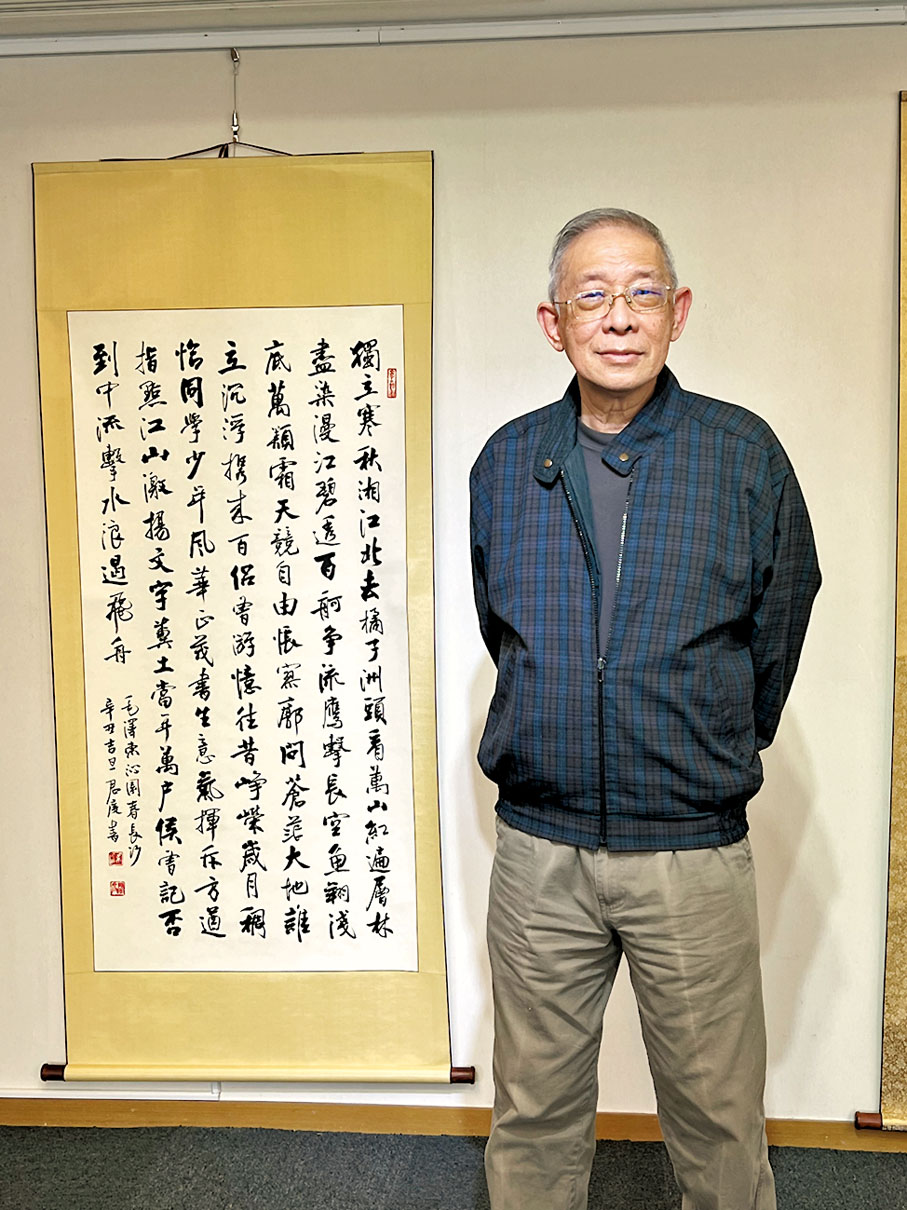 獨立寒秋湘江北去橘子洲頭看萬山紅遍層林
盡染漫江碧透百舸爭流鷹擊長空魚翔淺
底萬類霜天競自由悵寥廓問蒼茫大地誰
主沉浮携來百侶曾游憶往昔崢嶸歲月稠
恰同學少年風華正茂書生意氣揮斥方遒
指點江山激揚文字糞土當年萬户侯曾記否
到中流擊水浪遏飛舟
毛澤東沁園春長沙
辛丑吉旦書